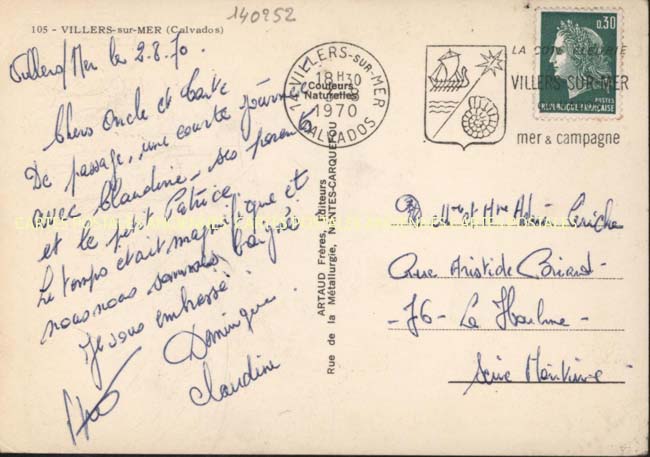 140252
105 - VILLERS-sur-MER (Calvados)
Villers/Mer le 2.8.70.
Chers Oncle et Tante
De passage, une courte journée
avec Claudine, ses parents
et le petit Patrice.
Le temps était magnifique et
nous nous sommes baigné.
Je vous embrasse.
Dominique
Claudine
14 VILLERS-SUR-MER
18H30
1970
CALVADOS
Couleurs
Naturelles
ARTAUD Frères, Editeurs
Rue de la Métallurgie, NANTES-CARQUEFOU
LA COTE FLEURIE
VILLERS-SUR-MER
mer & campagne
0,30
POSTES
REPUBLIQUE FRANÇAISE
Mr et Mme
Rue Aristide Briand
-76- Le
Seine Maritime